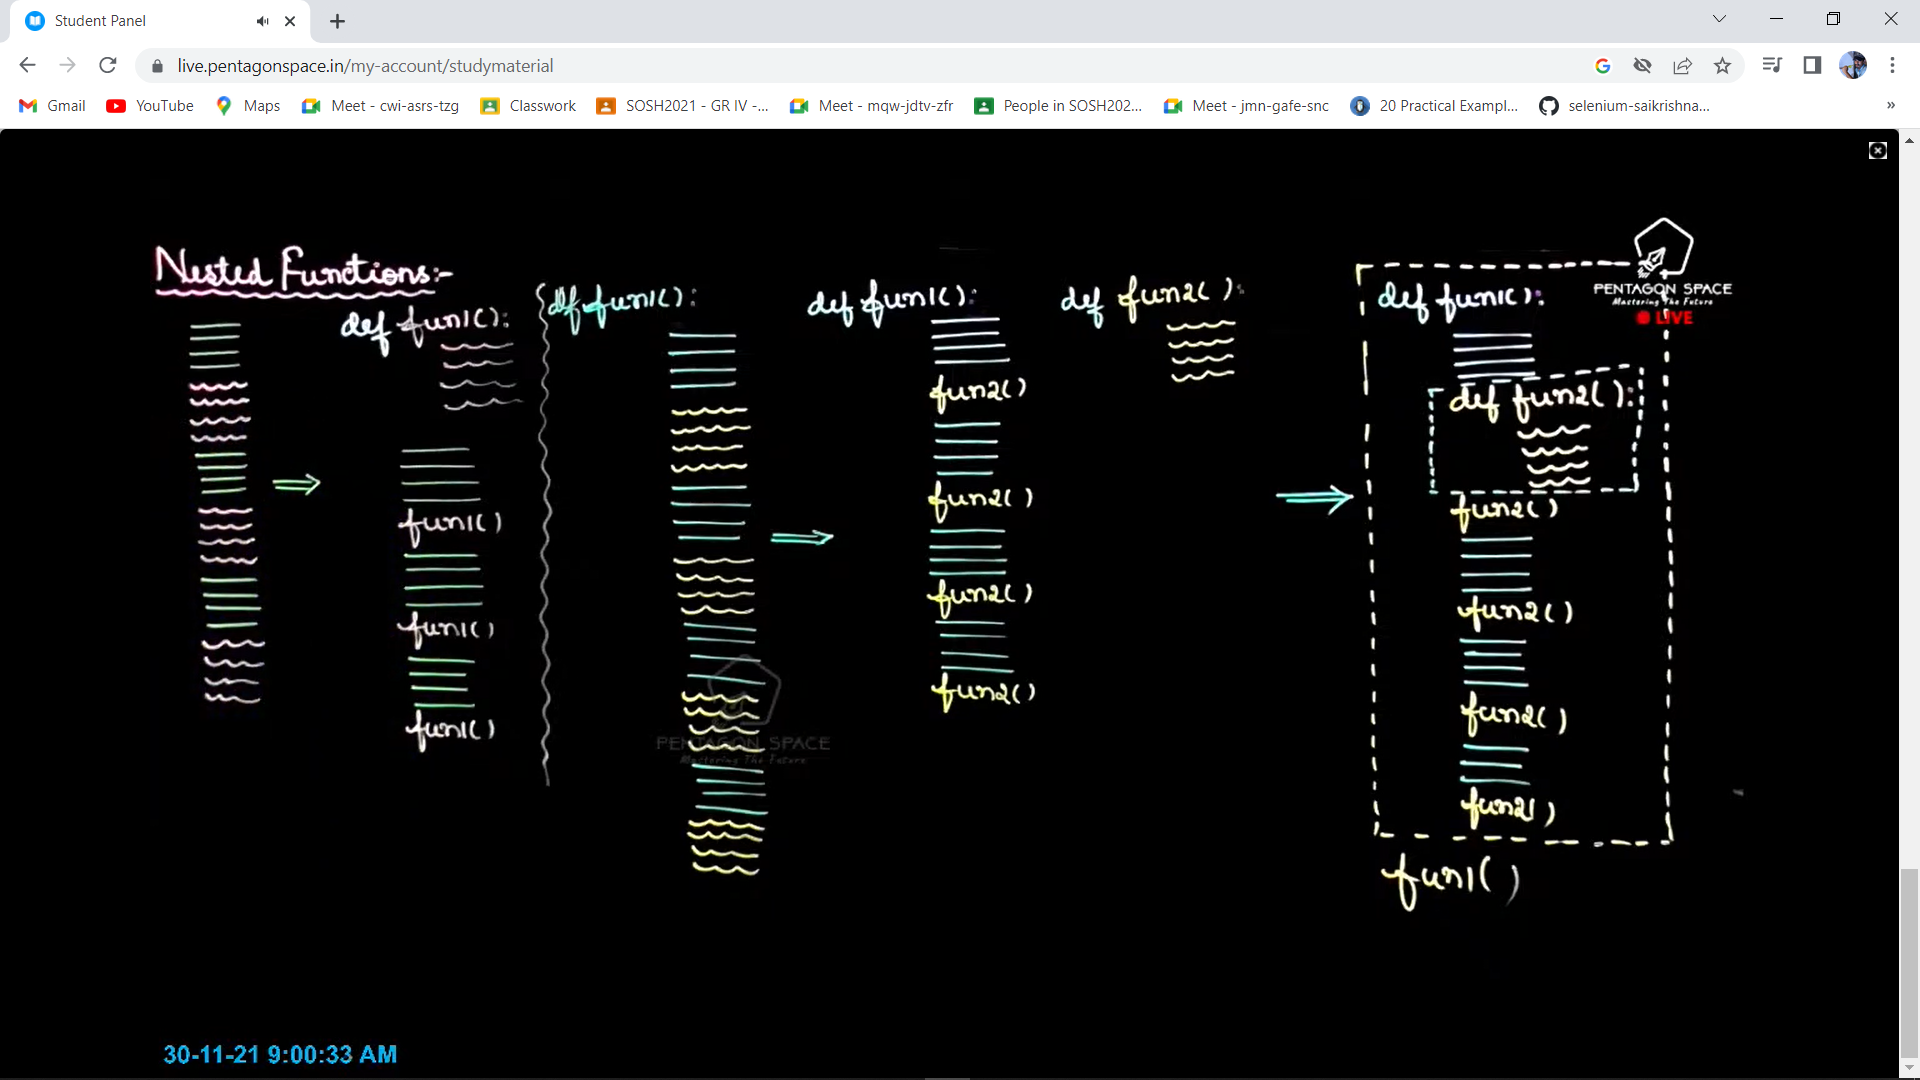 Student Panel
live.pentagonspace.in/my-account/studymaterial
Gmail
YouTube
Maps
Meet - cwi-asrs-tzg
Classwork
SOSH2021 - GR IV -...
Meet - mqw-jdtv-zfr
People in SOSH202...
Meet - jmn-gafe-snc
20 Practical Exampl...
selenium-saikrishna...
»
Nested Functions:-
def fun1():
fun1()
fun1()
fun1()
def fun1():
def fun1():
fun2()
fun2()
fun2()
fun2()
def fun2():
def fun1():
def fun2():
fun2()
fun2()
fun2()
fun2()
fun1()
PENTAGON SPACE
Mastering The Future
LIVE
PENTAGON SPACE
Mastering The Future
30-11-21 9:00:33 AM